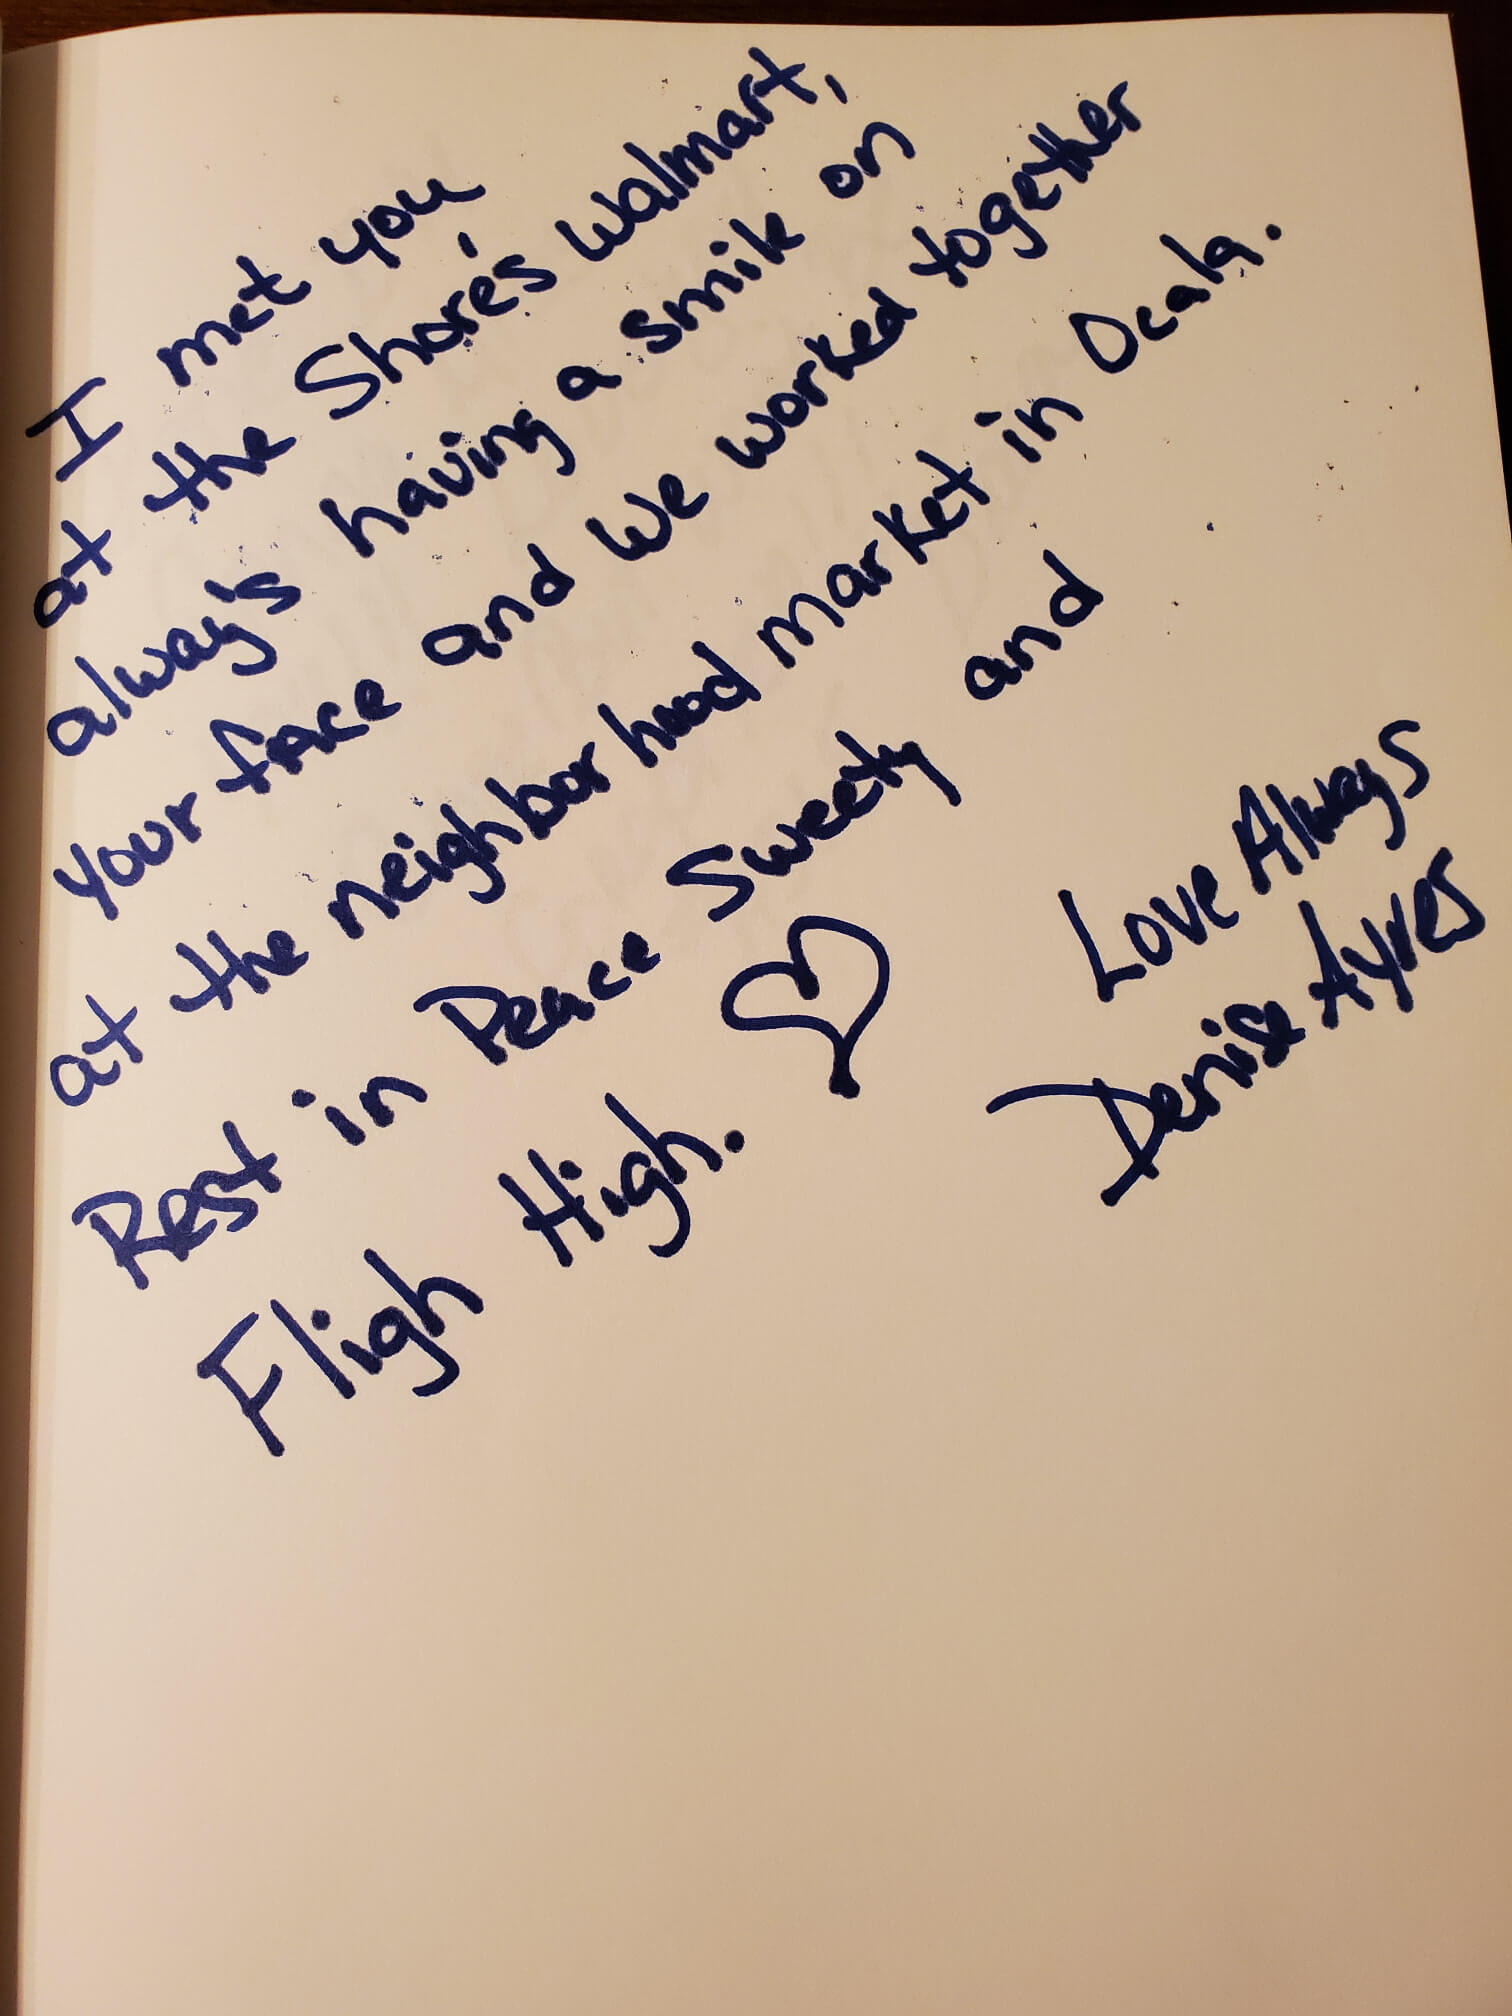 I met you
at the Shore's Walmart,
alway's having a smile on
your face and we worked together
at the neighbor hood market in Ocala.
Rest in Peace Sweety and
Fligh High.
Love Always
Denise Ayres